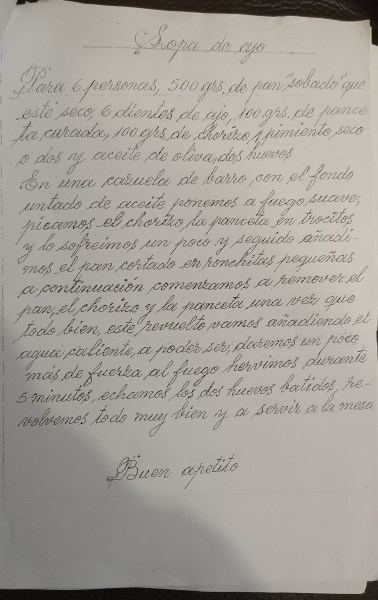 Sopa de ajo
Para 6 personas, 500 grs. de pan "sobado" que
esté seco, 6 dientes de ajo, 100 grs. de pance
ta curada, 100 grs. de chorizo, y pimiento seco
o dos y aceite de oliva, dos huevos
En una cazuela de barro, con el fondo
untado de aceite ponemos a fuego suave,
picamos el chorizo la panceta en trocitos
y lo sofreimos un poco y seguido añadi-
mos el pan cortado en ronchitas pequeñas
a continuación comenzamos a remover el
pan, el chorizo y la panceta una vez que
todo bien, esté, revuelto vamos añadiendo el
agua, caliente, a poder ser, daremos un poco
más, de fuerza al fuego hervimos durante
5 minutos, echamos los dos huevos batidos, re-
volvemos todo muy bien y a servir a la mesa
Buen apetito